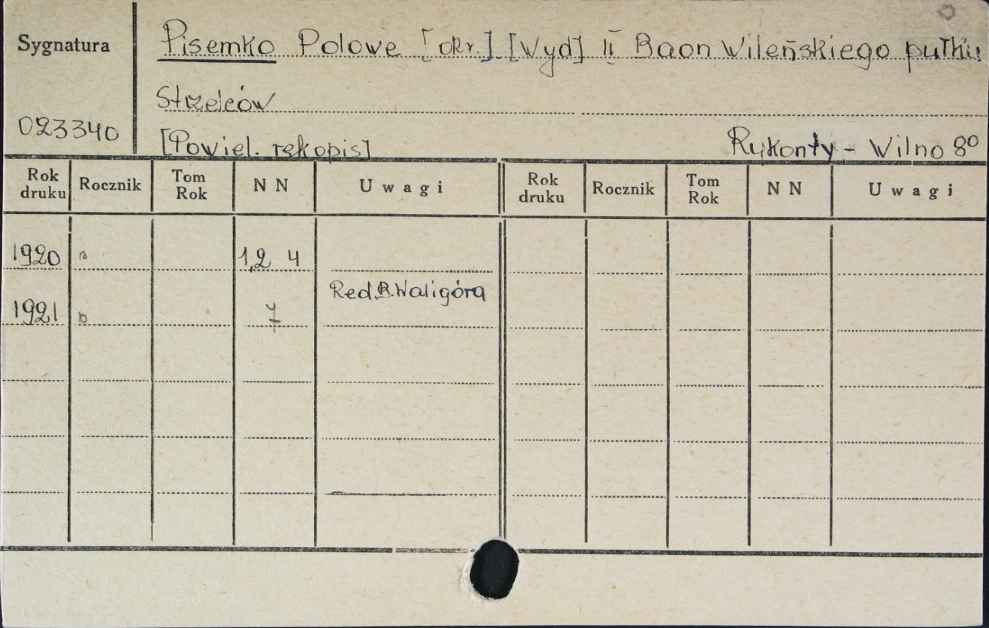 Sygnatura
Pisemko Polowe [okr.] [Wyd] II Baon Wileńskiego pułku
Strzelców
023340
[Powiel. rękopis] Rykonty - Wilno 8º
Rok druku Rocznik Tom Rok NN Uwagi Rok druku Rocznik Tom Rok NN Uwagi
1920 1,2 4
Red. B. Waligóra
1921 7